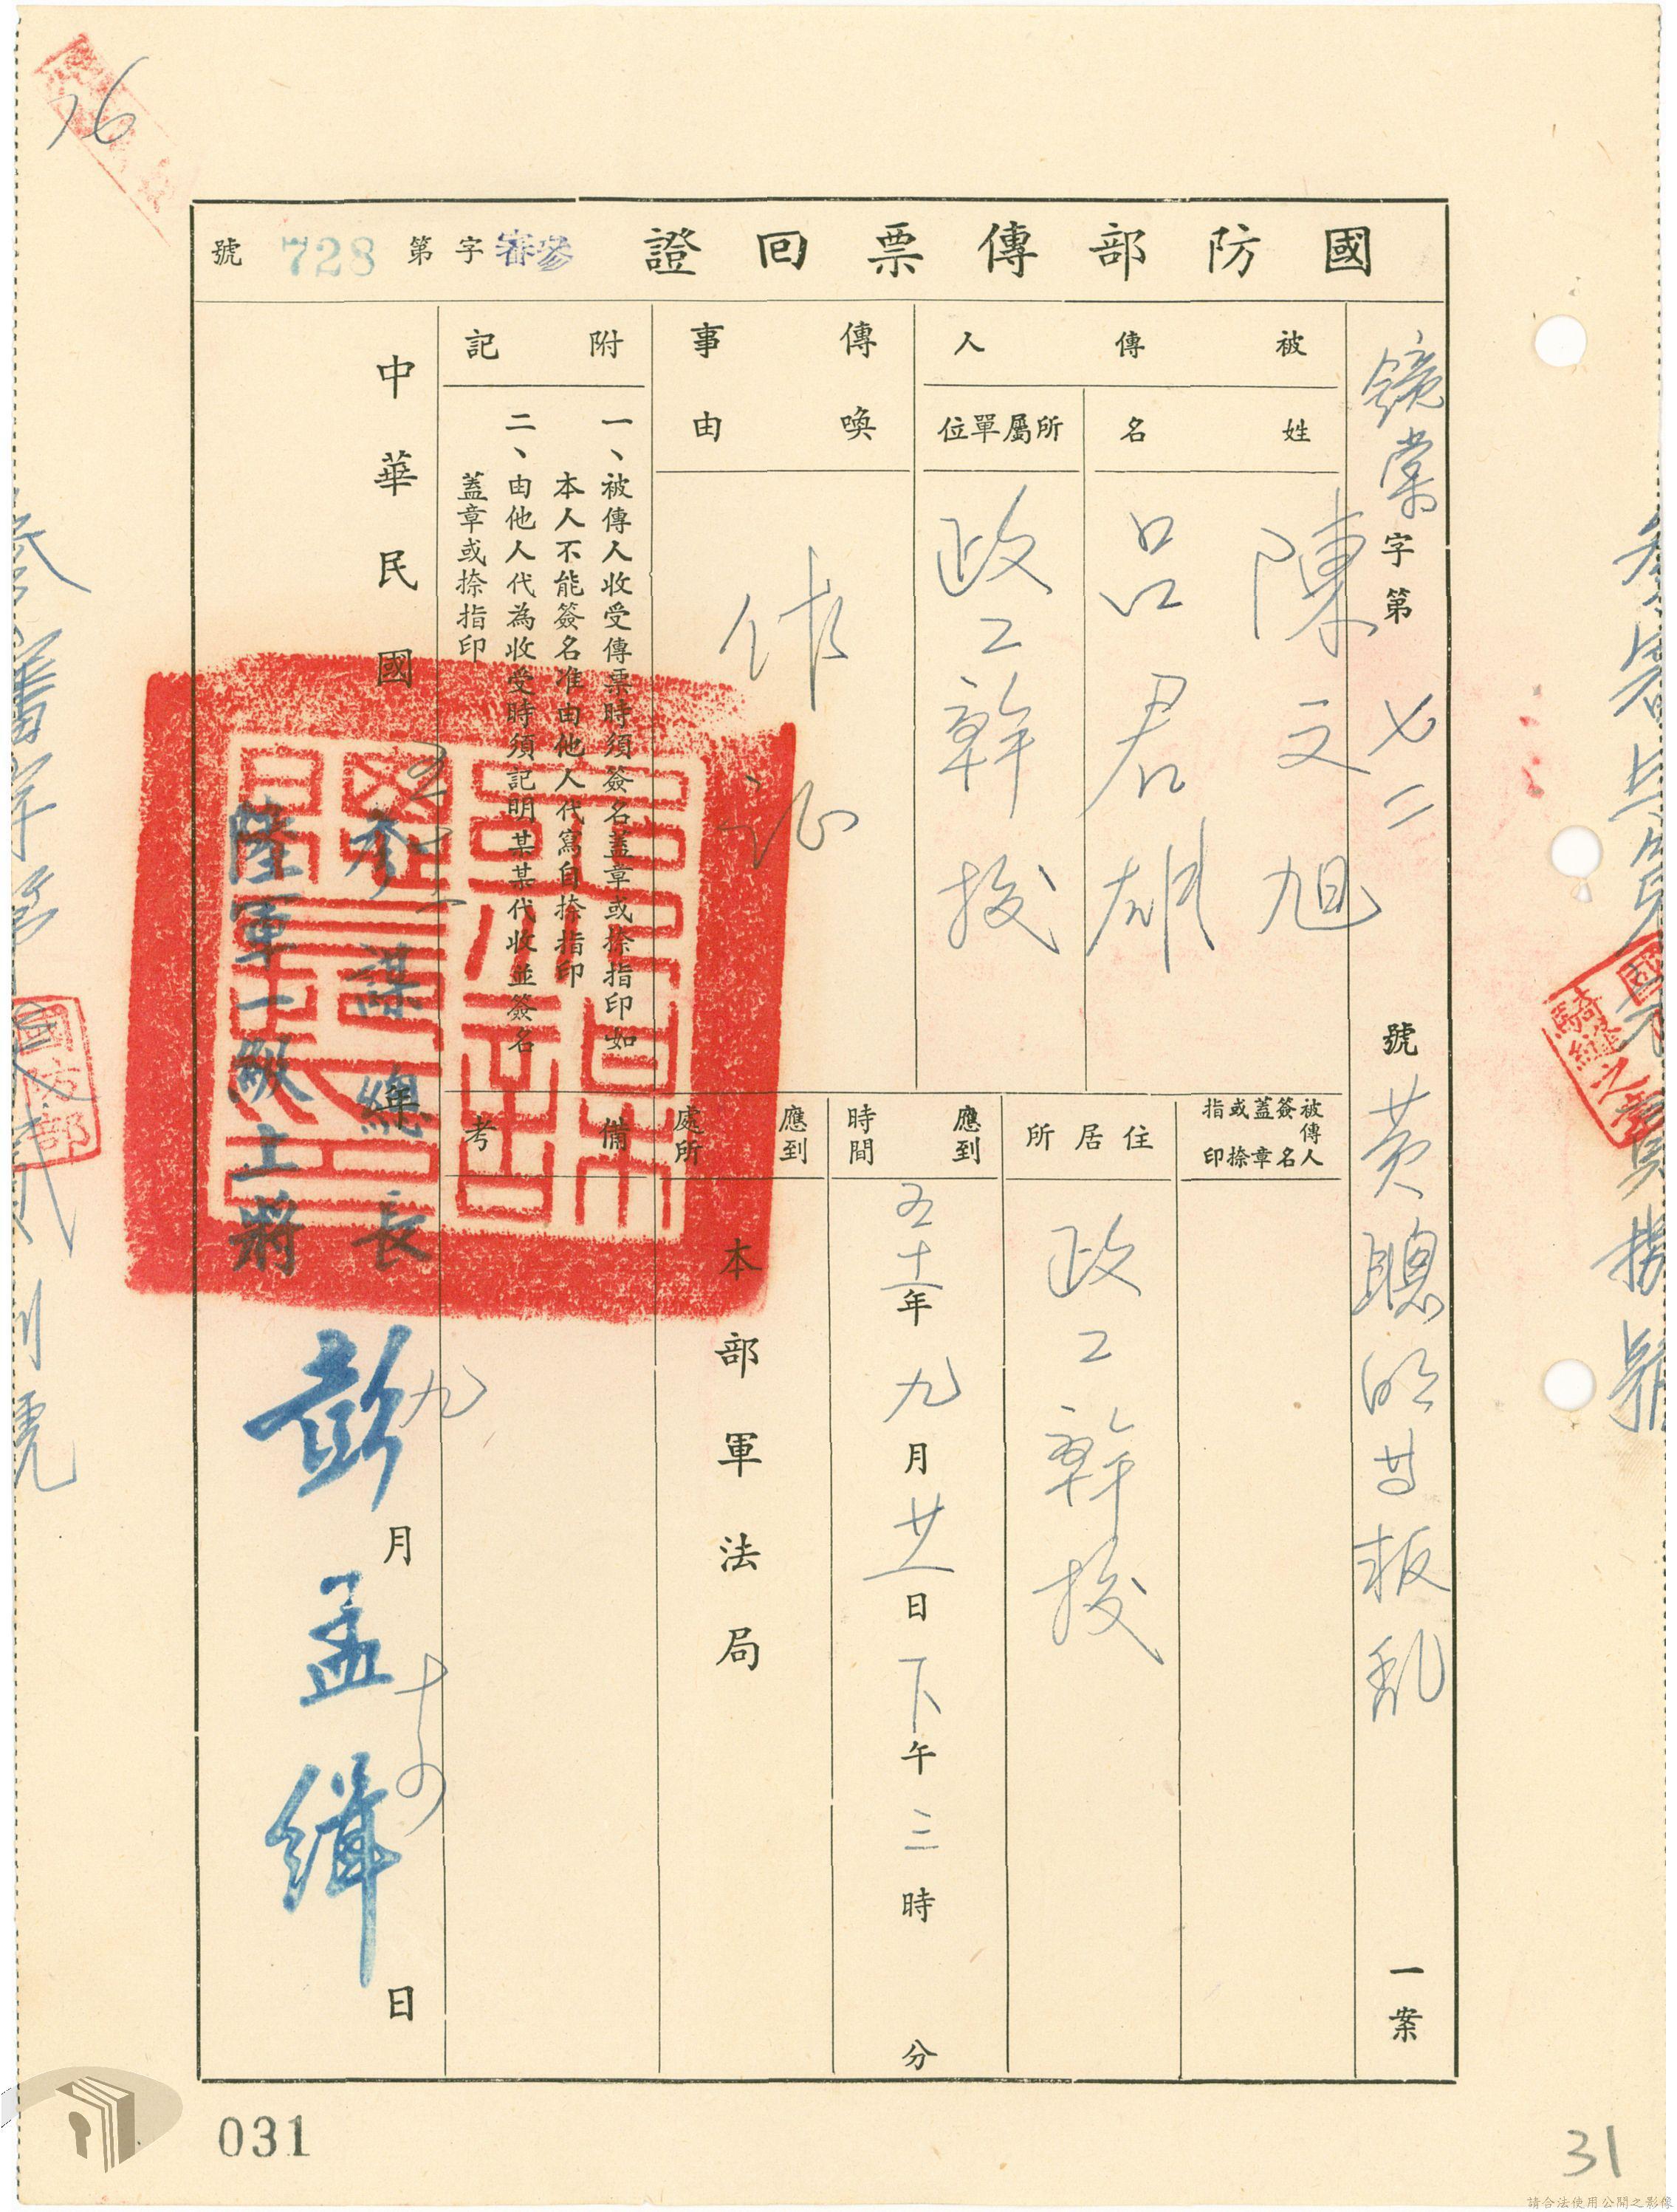 76
國防部傳票回證 參審字第728號
鏡棠字第七二號黃聰明等叛亂一案
被傳人
姓名
陳文旭
呂君雄
所屬單位
政工幹校
傳喚事由
作證
附記
一、被傳人收受傳票時須簽名蓋章或捺指印如
本人不能簽名准由他人代寫自捺指印
二、由他人代為收受時須記明某某代收並簽名
蓋章或捺指印
被傳人簽名蓋章或捺指印
住居所
政工幹校
應到時間
五十一年九月廿一日下午三時 分
應到處所
本部軍法局
備考
中華民國五十一年九月十四日
參謀總長
陸軍一級上將
彭孟緝
國防部
騎縫之章
031
31
請合法使用公開之影像